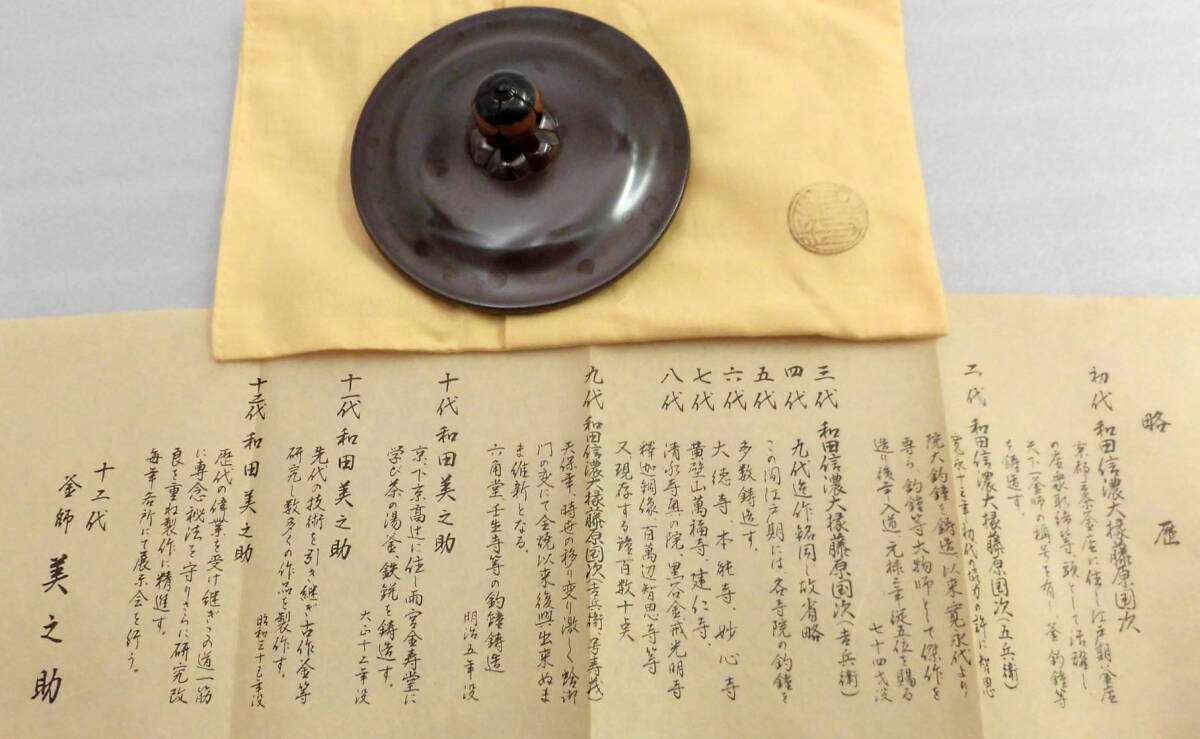 略歴
初代 和田信濃大掾藤原国次
京都三条釜座に住し江戸期釜座
の座衆取締等頭として活躍し
天下一釜師の称号を有し釜釣鐘等
を鋳造す。
二代 和田信濃大掾藤原国次(五兵衛)
寛永十三年初代の協力の許に智恩
院大釣鐘を鋳造以来寛永代より
専ら釣鐘等大物師として傑作を
造り後年入道元禄三年従五位を賜る
七十四才没
三代 和田信濃大掾藤原国次(吉兵衛)
四代 九代迄作銘同じ故省略
五代 この間江戸期には、各寺院の釣鐘を
多数鋳造す。
六代 大徳寺、本能寺、妙心寺
七代 黄壁山萬福寺、建仁寺、
八代 清水寺奥の院、黒谷金戒光明寺
釋迦銅像、百萬辺智恩寺等
又現存する鐘百数十点
九代 和田信濃大掾藤原国次(吉兵衛、号寿哉)
天保年、時世の移り変り激しく蛤御
門の変にて全焼以来後興出来ぬま
ま維新となる。
六角堂壬生寺等の釣鐘鋳造
明治五年没
十代 和田美之助
京、下京高辻に住し雨宮金寿堂に
学び茶の湯釜、鉄銚を鋳造す。
大正十二年没
十一代 和田美之助
先代の技術を引き継ぎ古作釜等
研究し数多くの作品を製作す。
昭和三十三年没
十二代 和田美之助
歴代の偉業を受け継ぎこの道一筋
に専念秘法を守りさらに研究改
良を重ね製作に精進す。
毎年各所にて展示会を行う。
十二代
釜師 美之助